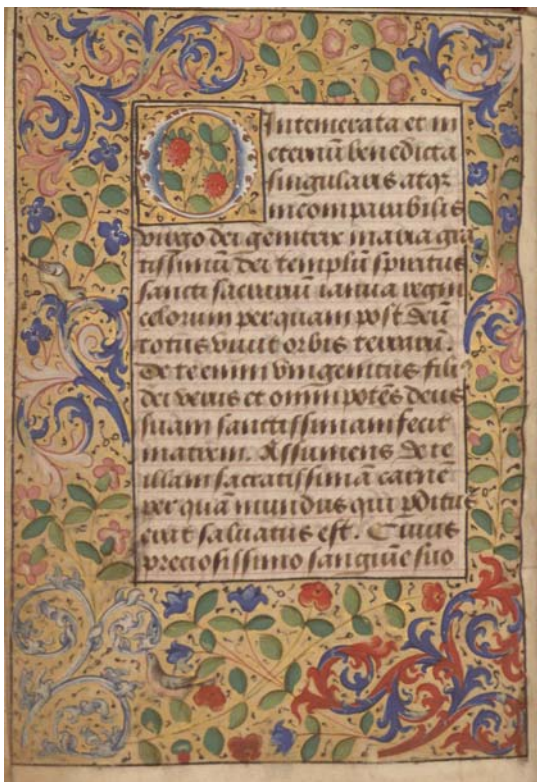 O Intemerata et in
eternū benedicta
singularis atqꝫ
incomparabilis
virgo dei genitrix maria gra
tissimū dei templū spiritus
sancti sacrariū ianua regni
celorum per quam post deū
totus viuit orbis terrarū.
De te enim vnigenitus fili
dei verus et omnipotēs deus
suam sanctissimam fecit
matrem. Assumens de te
illam sacratissimā carnē
per quā mundus qui pditus
erat saluatus est. Cuius
preciosissimo sanguīe suo